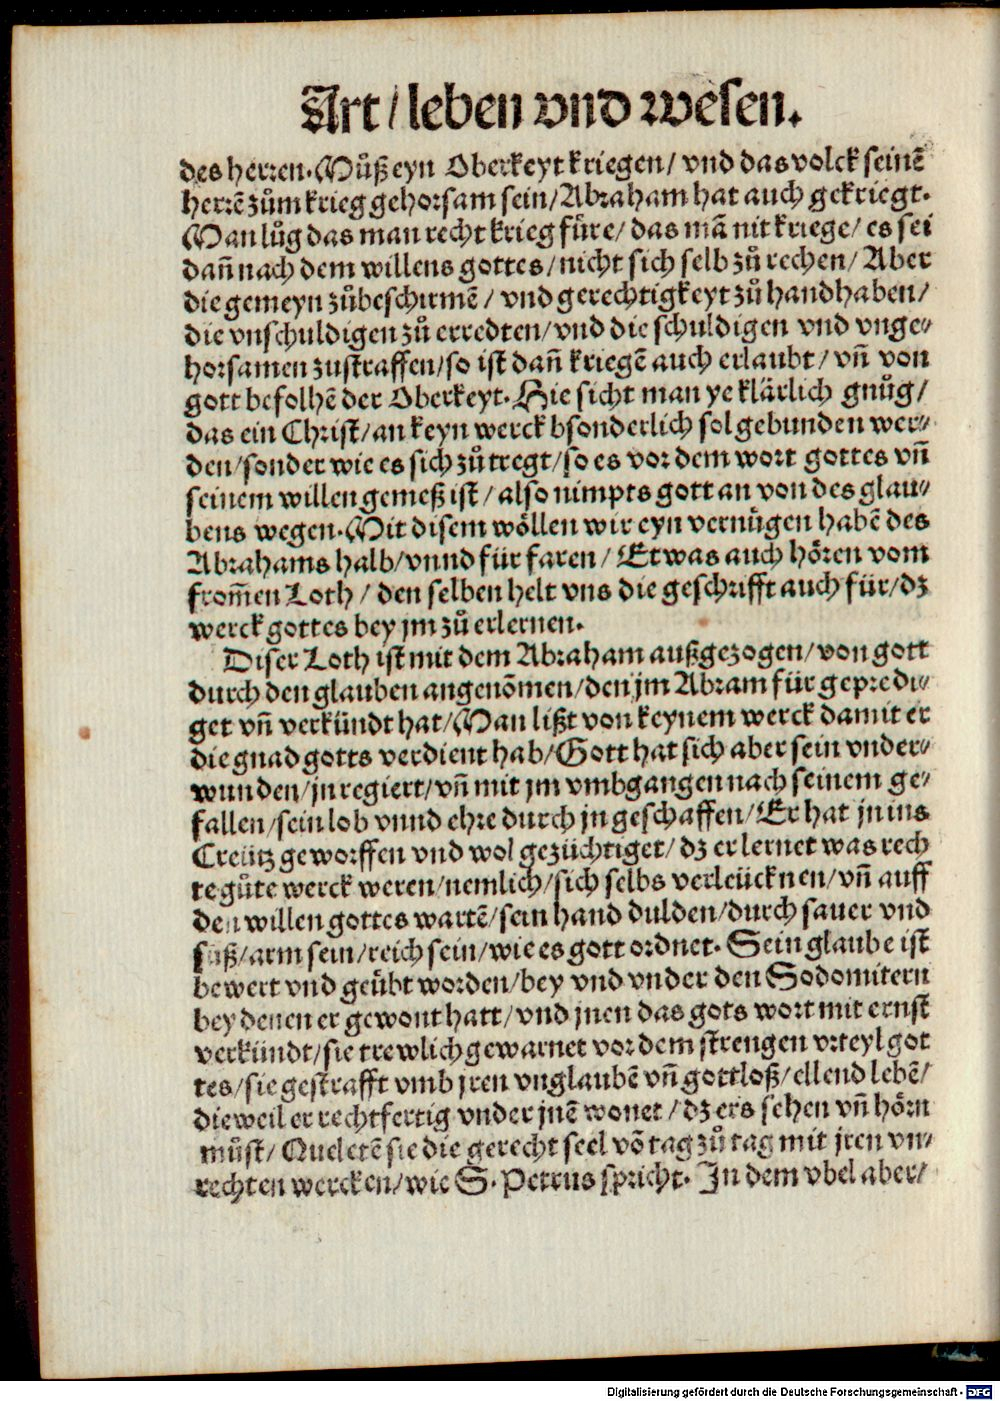 Art / leben vnd wesen.
des herren. Můß eyn Oberkeyt kriegen / vnd das volck seinē
herrē zům krieg gehorsam sein / Abraham hat auch gekriegt.
Man lůg das man recht krieg füre / das mā nit kriege / es sei
dañ nach dem willens gottes / nicht sich selb zů rechen / Aber
die gemeyn zůbeschirmē / vnd gerechtigkeyt zů handhaben /
die vnschuldigen zů erredten / vnd die schuldigen vnd vnge⸗
horsamen zustraffen / so ist dañ kriegē auch erlaubt / vñ von
gott befolhē der Oberkeyt. Hie sicht man ye klärlich gnůg /
das ein Christ / an keyn werck bsonderlich sol gebunden wer⸗
den / sonder wie es sich zů tregt / so es vor dem wort gottes vñ
seinem willen gemeß ist / also nimpts gott an von des glau⸗
bens wegen. Mit disem wöllen wir eyn vernůgen habē des
Abrahams halb / vnnd für faren / Etwas auch hören vom
from̄en Loth / den selben helt vns die geschrifft auch für / dz
werck gottes bey jm zů erlernen.
Diser Loth ist mit dem Abraham außgezogen / von gott
durch den glauben angenōmen / den jm Abram für gepredi⸗
get vñ verkündt hat / Man lißt von keynem werck damit er
die gnad gotts verdient hab / Gott hat sich aber sein vnder⸗
wunden / jn regiert / vñ mit jm vmbgangen nach seinem ge⸗
fallen / sein lob vnnd ehre durch jn geschaffen / Er hat jn ins
Creütz geworffen vnd wol gezüchtiget / dz er lernet was rech
te gůte werck weren / nemlich / sich selbs verleücknen / vñ auff
den willen gottes wartē / sein hand dulden / durch sauer vnd
süß / arm sein / reich sein / wie es gott ordnet. Sein glaube ist
bewert vnd geübt worden / bey vnd vnder den Sodomitern
bey denen er gewont hatt / vnd jnen das gots wort mit ernst
verkündt / sie trewlich gewarnet vor dem strengen vrteyl got
tes / sie gestrafft vmb jren vnglaubē vñ gottloß / ellend lebē /
die weil er rechtfertig vnder jnē wonet / dz ers sehen vñ hörn
můst / Queletē sie die gerecht seel vō tag zů tag mit jren vn⸗
rechten wercken / wie S. Petrus spricht. In dem vbel aber /
Digitalisierung gefördert durch die Deutsche Forschungsgemeinschaft - DFG